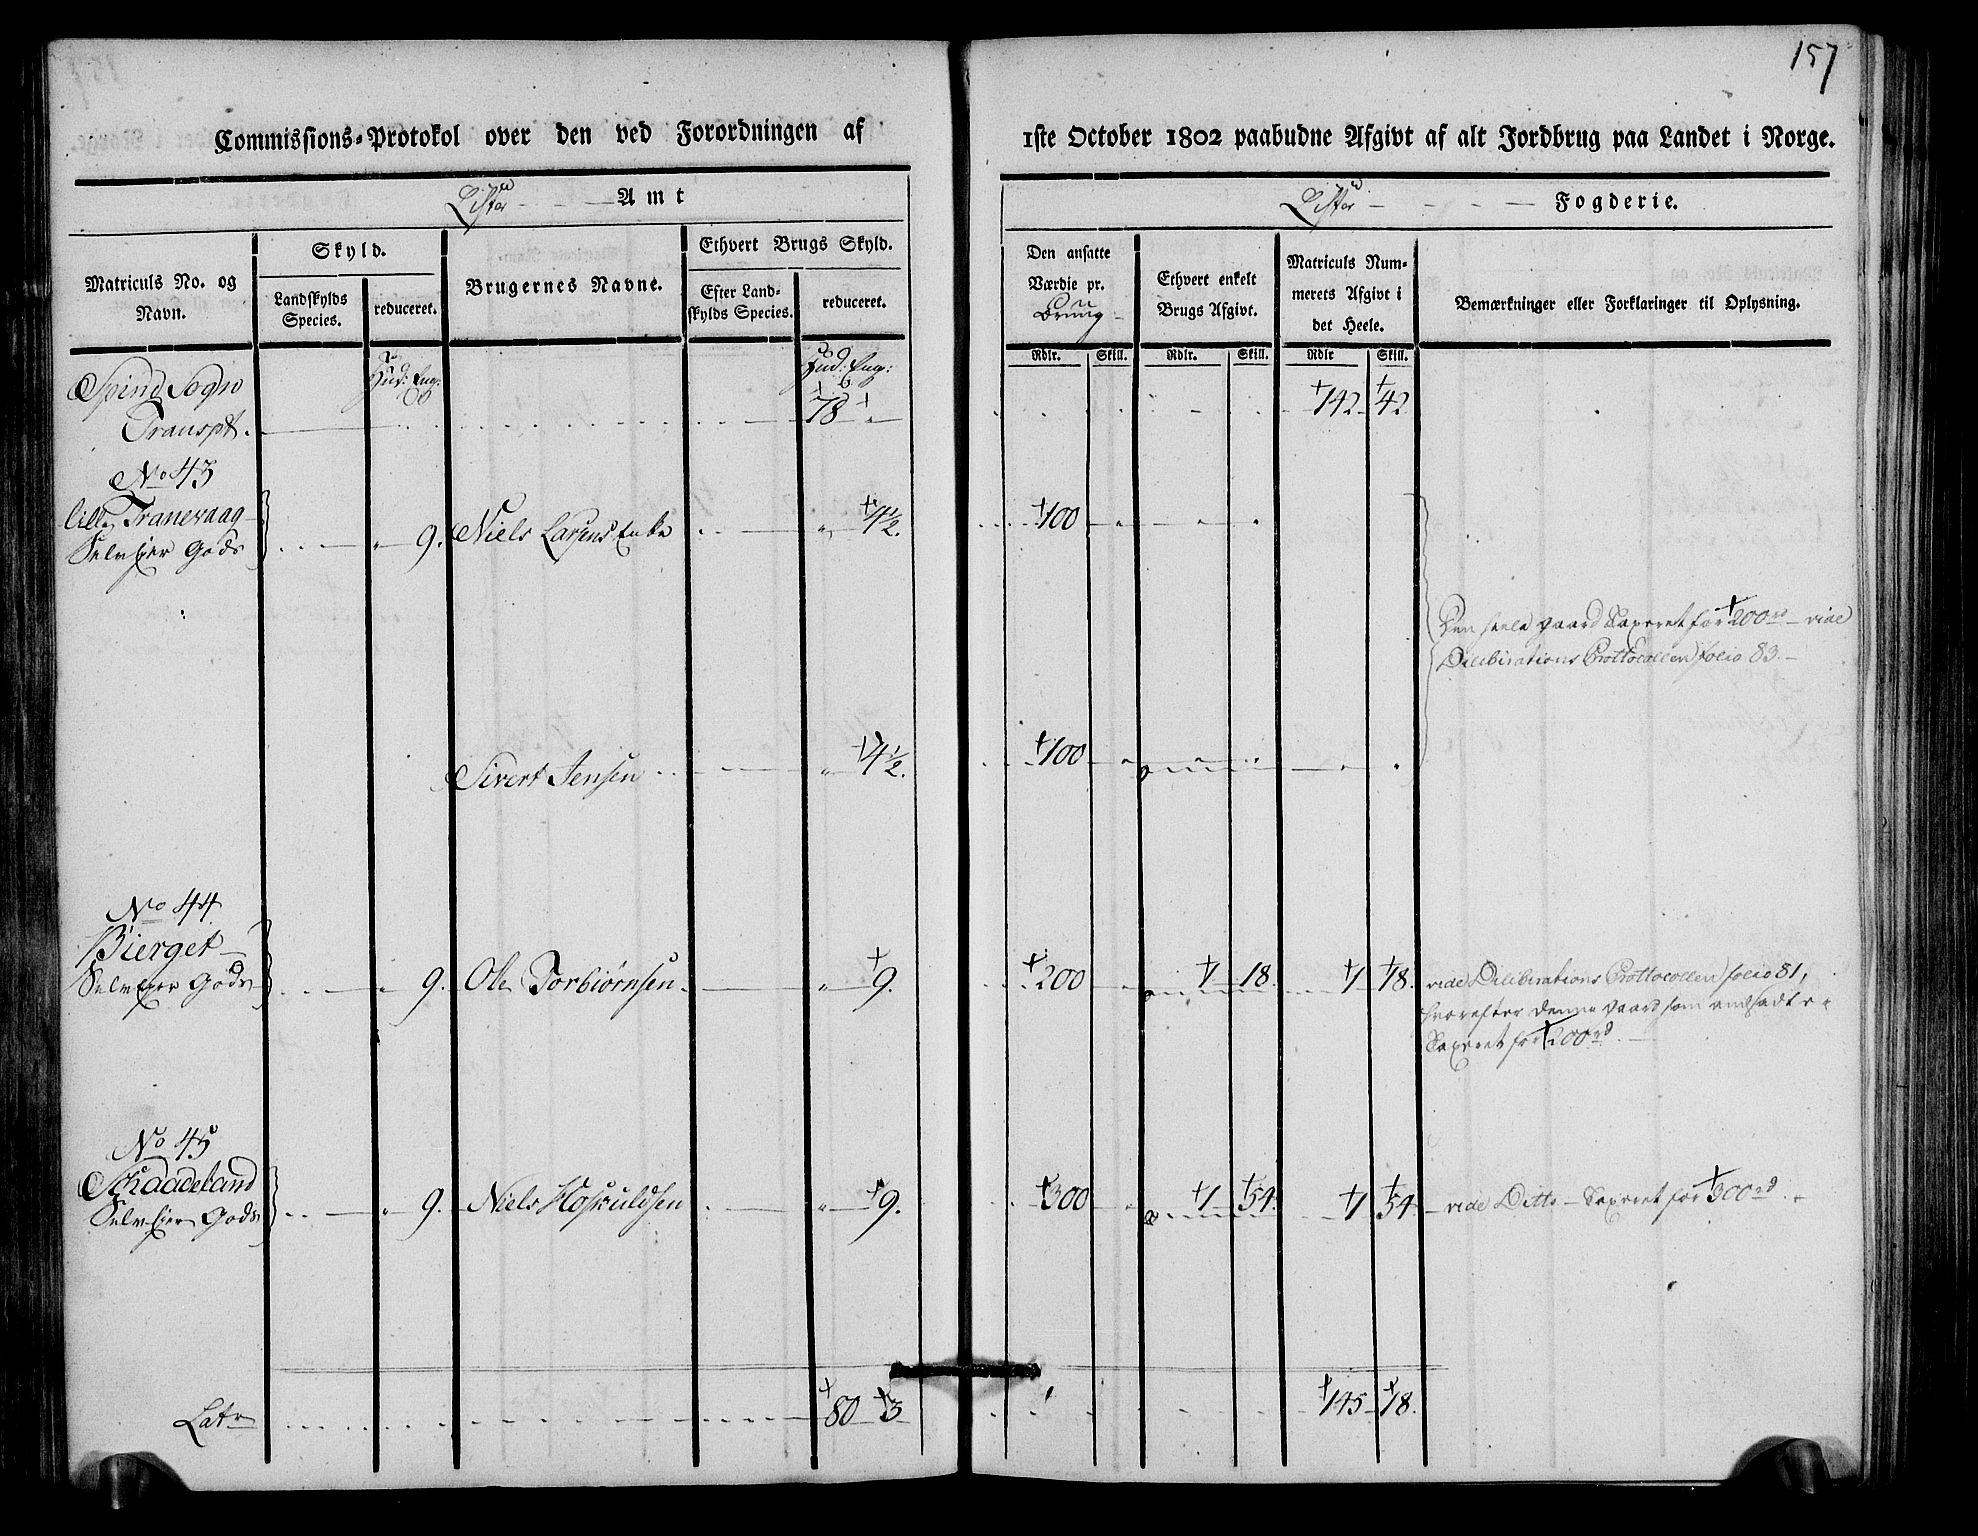 157
Commissions-Protokol over den ved Forordningen af 1ste October 1802 paabudne Afgivt af alt Jordbrug paa Landet i Norge.
Lister Amt
Lister Fogderie.
Matriculs No. og Navn.
Skyld.
Landskylds Species.
reduceret.
Brugernes Navne.
Ethvert Brugs Skyld.
Efter Landskylds Species.
reduceret.
Den ansatte Værdie pr. Brug
Ethvert enkelt Brugs Afgivt.
Matriculs Nummerets Afgivt i det Heele.
Bemærkninger eller Forklaringer til Oplysning.
Rdlr. Skill. Rdlr. Skill. Rdlr Skill.
Spind Sogn Hud: Eng: Hud: Eng:
Transpt. 78 " 142 42
No 43
lille Tranevaag
Selv Eier Gods " 9. Niels Larsens Enke " 4½. 100 " " "
Den heele Gaard Taxeret for 200 rd vide
Deliberations Prottocollen folio 83.
Sivert Jensen " 4½. 100
No 44
Bierget
Selv Eier Gods " 9. Ole Torbiørnsen " 9. 200 " 1 18. 1 18. vide Deliberations Prottocollen folio 81,
hvorefter denne Gaard som andsadt er
Taxeret for 200 rd.
No 45
Schaadeland
Selv Eier Gods " 9. Niels Hosvuldsen " 9. 300 " 1 54. 1 54. vide Ditto Taxeret for 300 rd.
Latr 80 3 145 18.